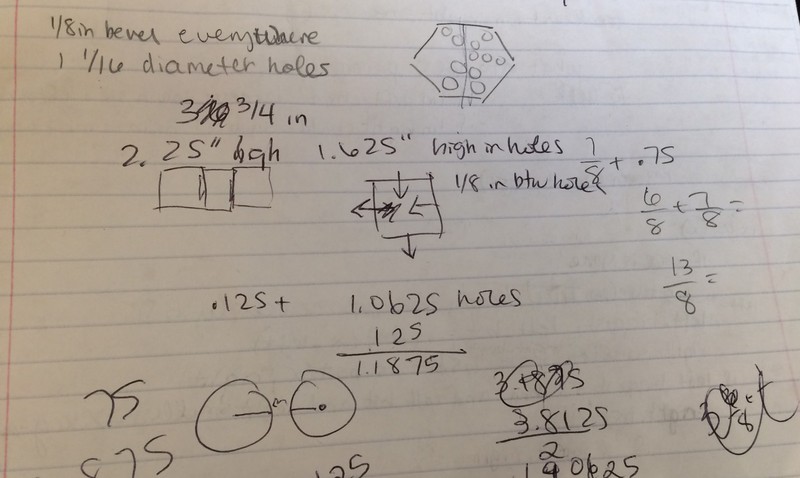 1/8 in bevel everywhere
1 1/16 diameter holes
3 3/4 in
2.25" high 1.625" high in holes 7/8 + .75
1/8 in btw holes
6/8 + 7/8 =
13/8 =
.125 + 1.0625 holes
.125
1.1875
75
3.8125
75
125
0625